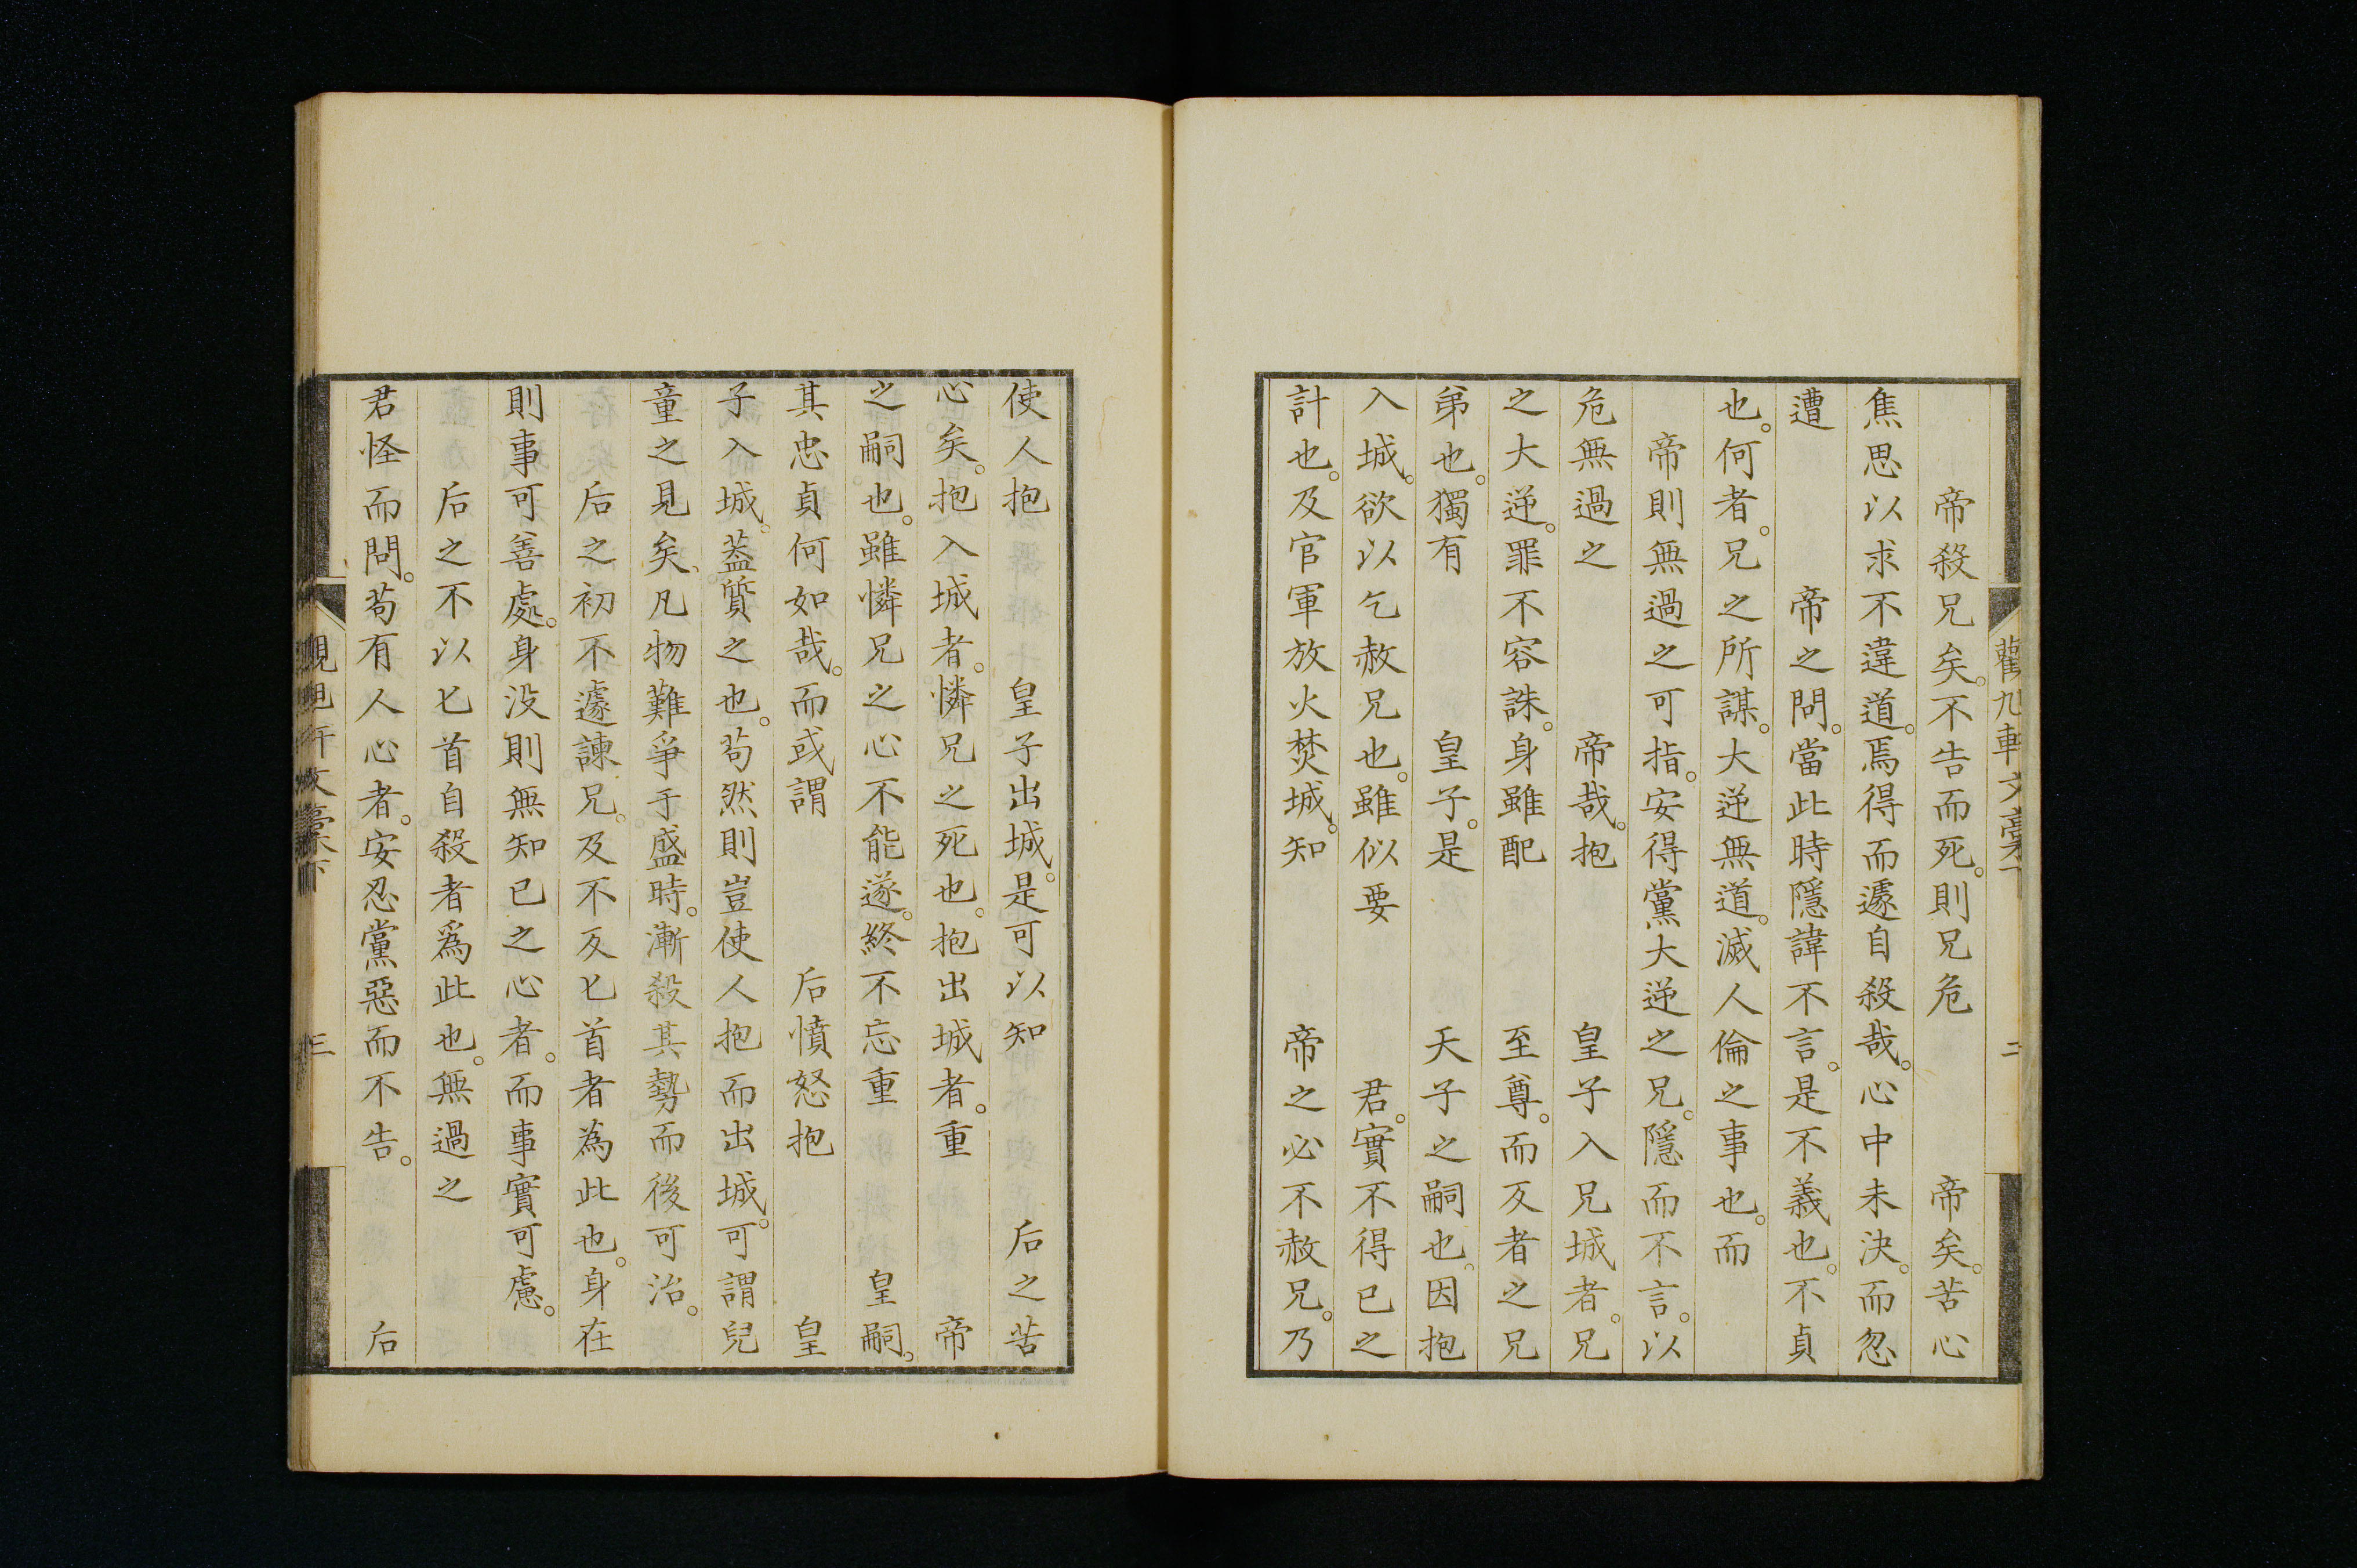 帝殺兄矣。不告而死。則兄危　帝矣。苦心
焦思以求不違道。焉得而遽自殺哉。心中未決。而忽
遭　帝之問。當此時隱諱不言。是不義也。不貞
也。何者。兄之所謀。大逆無道。滅人倫之事也。而
帝則無過之可指。安得黨大逆之兄。隱而不言。以
危無過之　帝哉。抱　皇子入兄城者。兄
之大逆。罪不容誅。身雖配　至尊。而反者之兄
弟也。獨有　皇子。是　天子之嗣也。因抱
入城。欲以乞赦兄也。雖似要　君。實不得已之
計也。及官軍放火焚城。知　帝之必不赦兄。乃
使人抱　皇子出城。是可以知　后之苦
心矣。抱入城者。憐兄之死也。抱出城者。重　帝
之嗣也。雖憐兄之心不能遂。終不忘重　皇嗣。
其忠貞何如哉。而或謂　后憤怒抱　皇
子入城。葢質之也。苟然則豈使人抱而出城。可謂兒
童之見矣、凡物難爭于盛時。漸殺其勢而後可治。
后之初不遽諫兄。及不反匕首者為此也。身在
則事可善處。身没則無知已之心者。而事實可慮。
后之不以匕首自殺者爲此也。無過之
君怪而問。苟有人心者。安忍黨惡而不告。　后
二
三